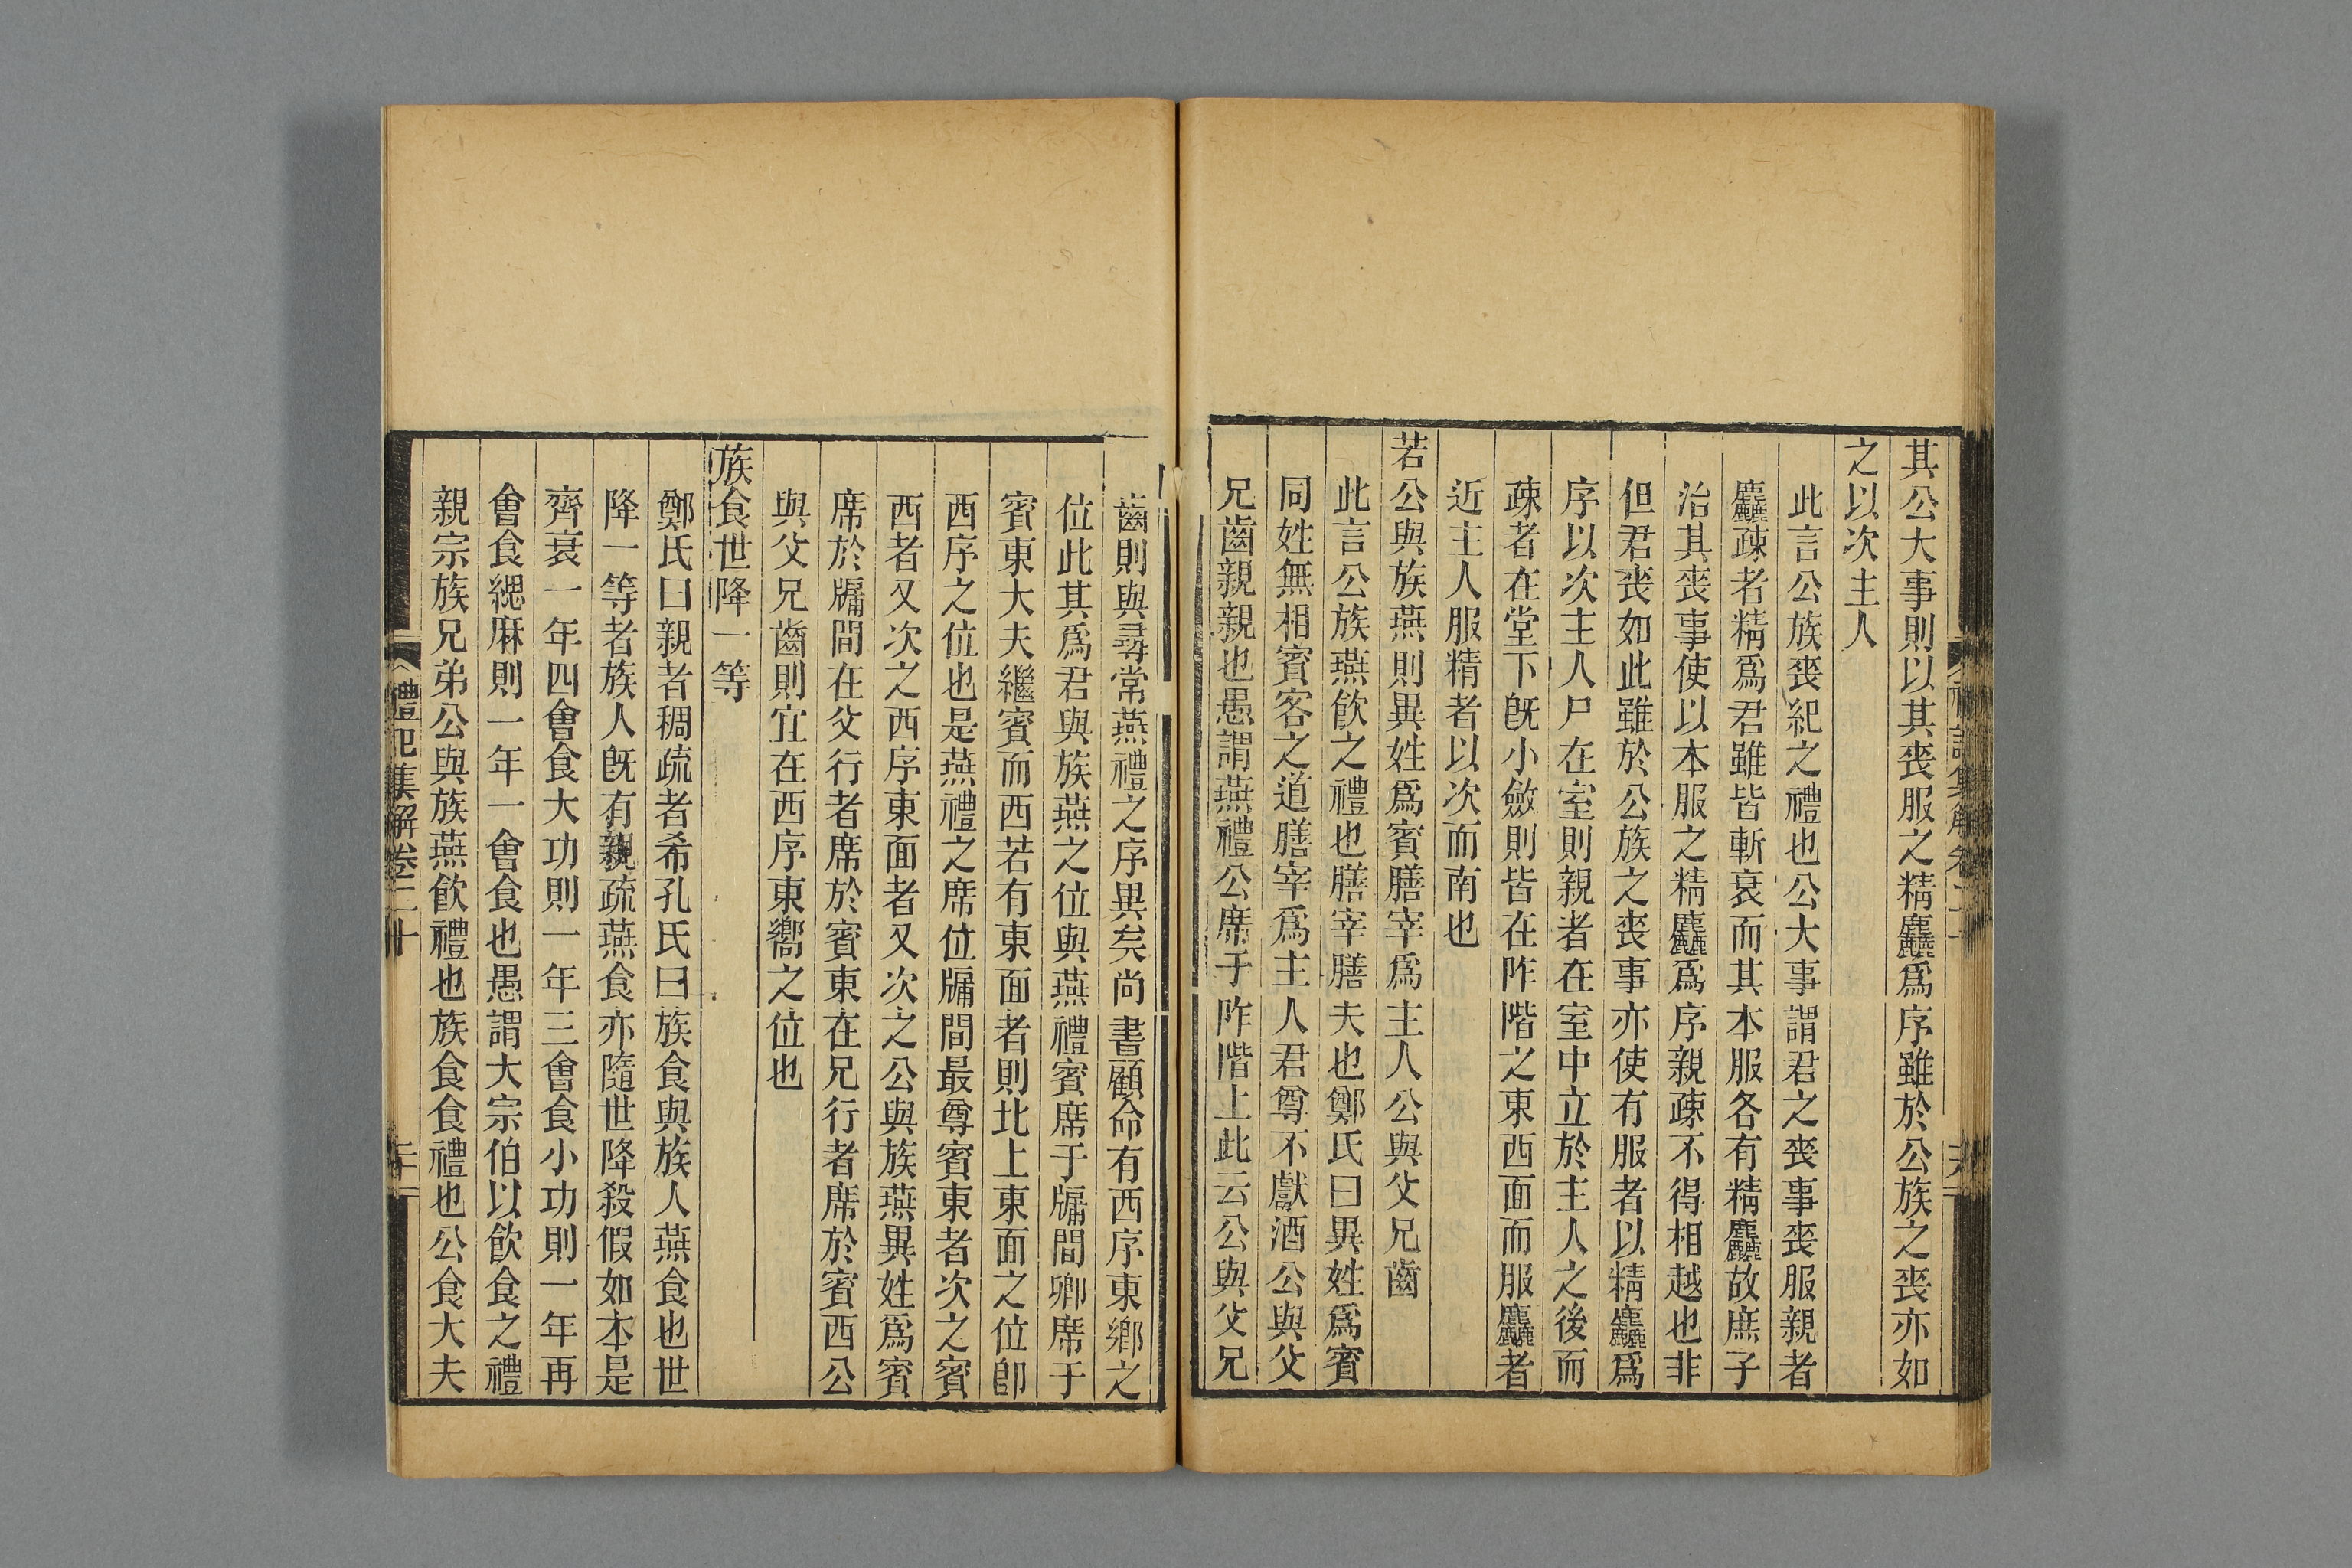 其公大事則以其喪服之精麤爲序雖於公族之喪亦如
之以次主人
此言公族喪紀之禮也公大事謂君之喪事喪服親者
麤疎者精爲君雖皆斬衰而其本服各有精麤故庶子
治其喪事使以本服之精麤爲序親疎不得相越也非
但君喪如此雖於公族之喪事亦使有服者以精麤爲
序以次主人尸在室則親者在室中立於主人之後而
疎者在堂下旣小斂則皆在阼階之東西面而服麤者
近主人服精者以次而南也
若公與族燕則異姓爲賓膳宰爲主人公與父兄齒
此言公族燕飮之禮也膳宰膳夫也鄭氏曰異姓爲賓
同姓無相賓客之道膳宰爲主人君尊不獻酒公與父
兄齒親親也愚謂燕禮公席于阼階上此云公與父兄
齒則與尋常燕禮之序異矣尚書顧命有西序東鄉之
位此其爲君與族燕之位與燕禮賓席于牖間卿席于
賓東大夫繼賓而西若有東面者則北上東面之位卽
西序之位也是燕禮之席位牖間最尊賓東者次之賓
西者又次之西序東面者又次之公與族燕異姓爲賓
席於牖間在父行者席於賓東在兄行者席於賓西公
與父兄齒則宜在西序東嚮之位也
族食世降一等
鄭氏曰親者稠疏者希孔氏曰族食與族人燕食也世
降一等者族人旣有親疏燕食亦隨世降殺假如本是
齊衰一年四會食大功則一年三會食小功則一年再
會食緦麻則一年一會食也愚謂大宗伯以飮食之禮
親宗族兄弟公與族燕飮禮也族食食禮也公食大夫
禮記集解卷二十